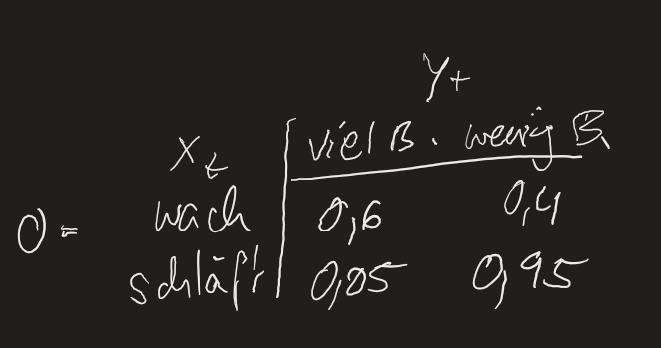 Y_t
X_t viel B. wenig B.
O = wach 0,6 0,4
schläft 0,05 0,95